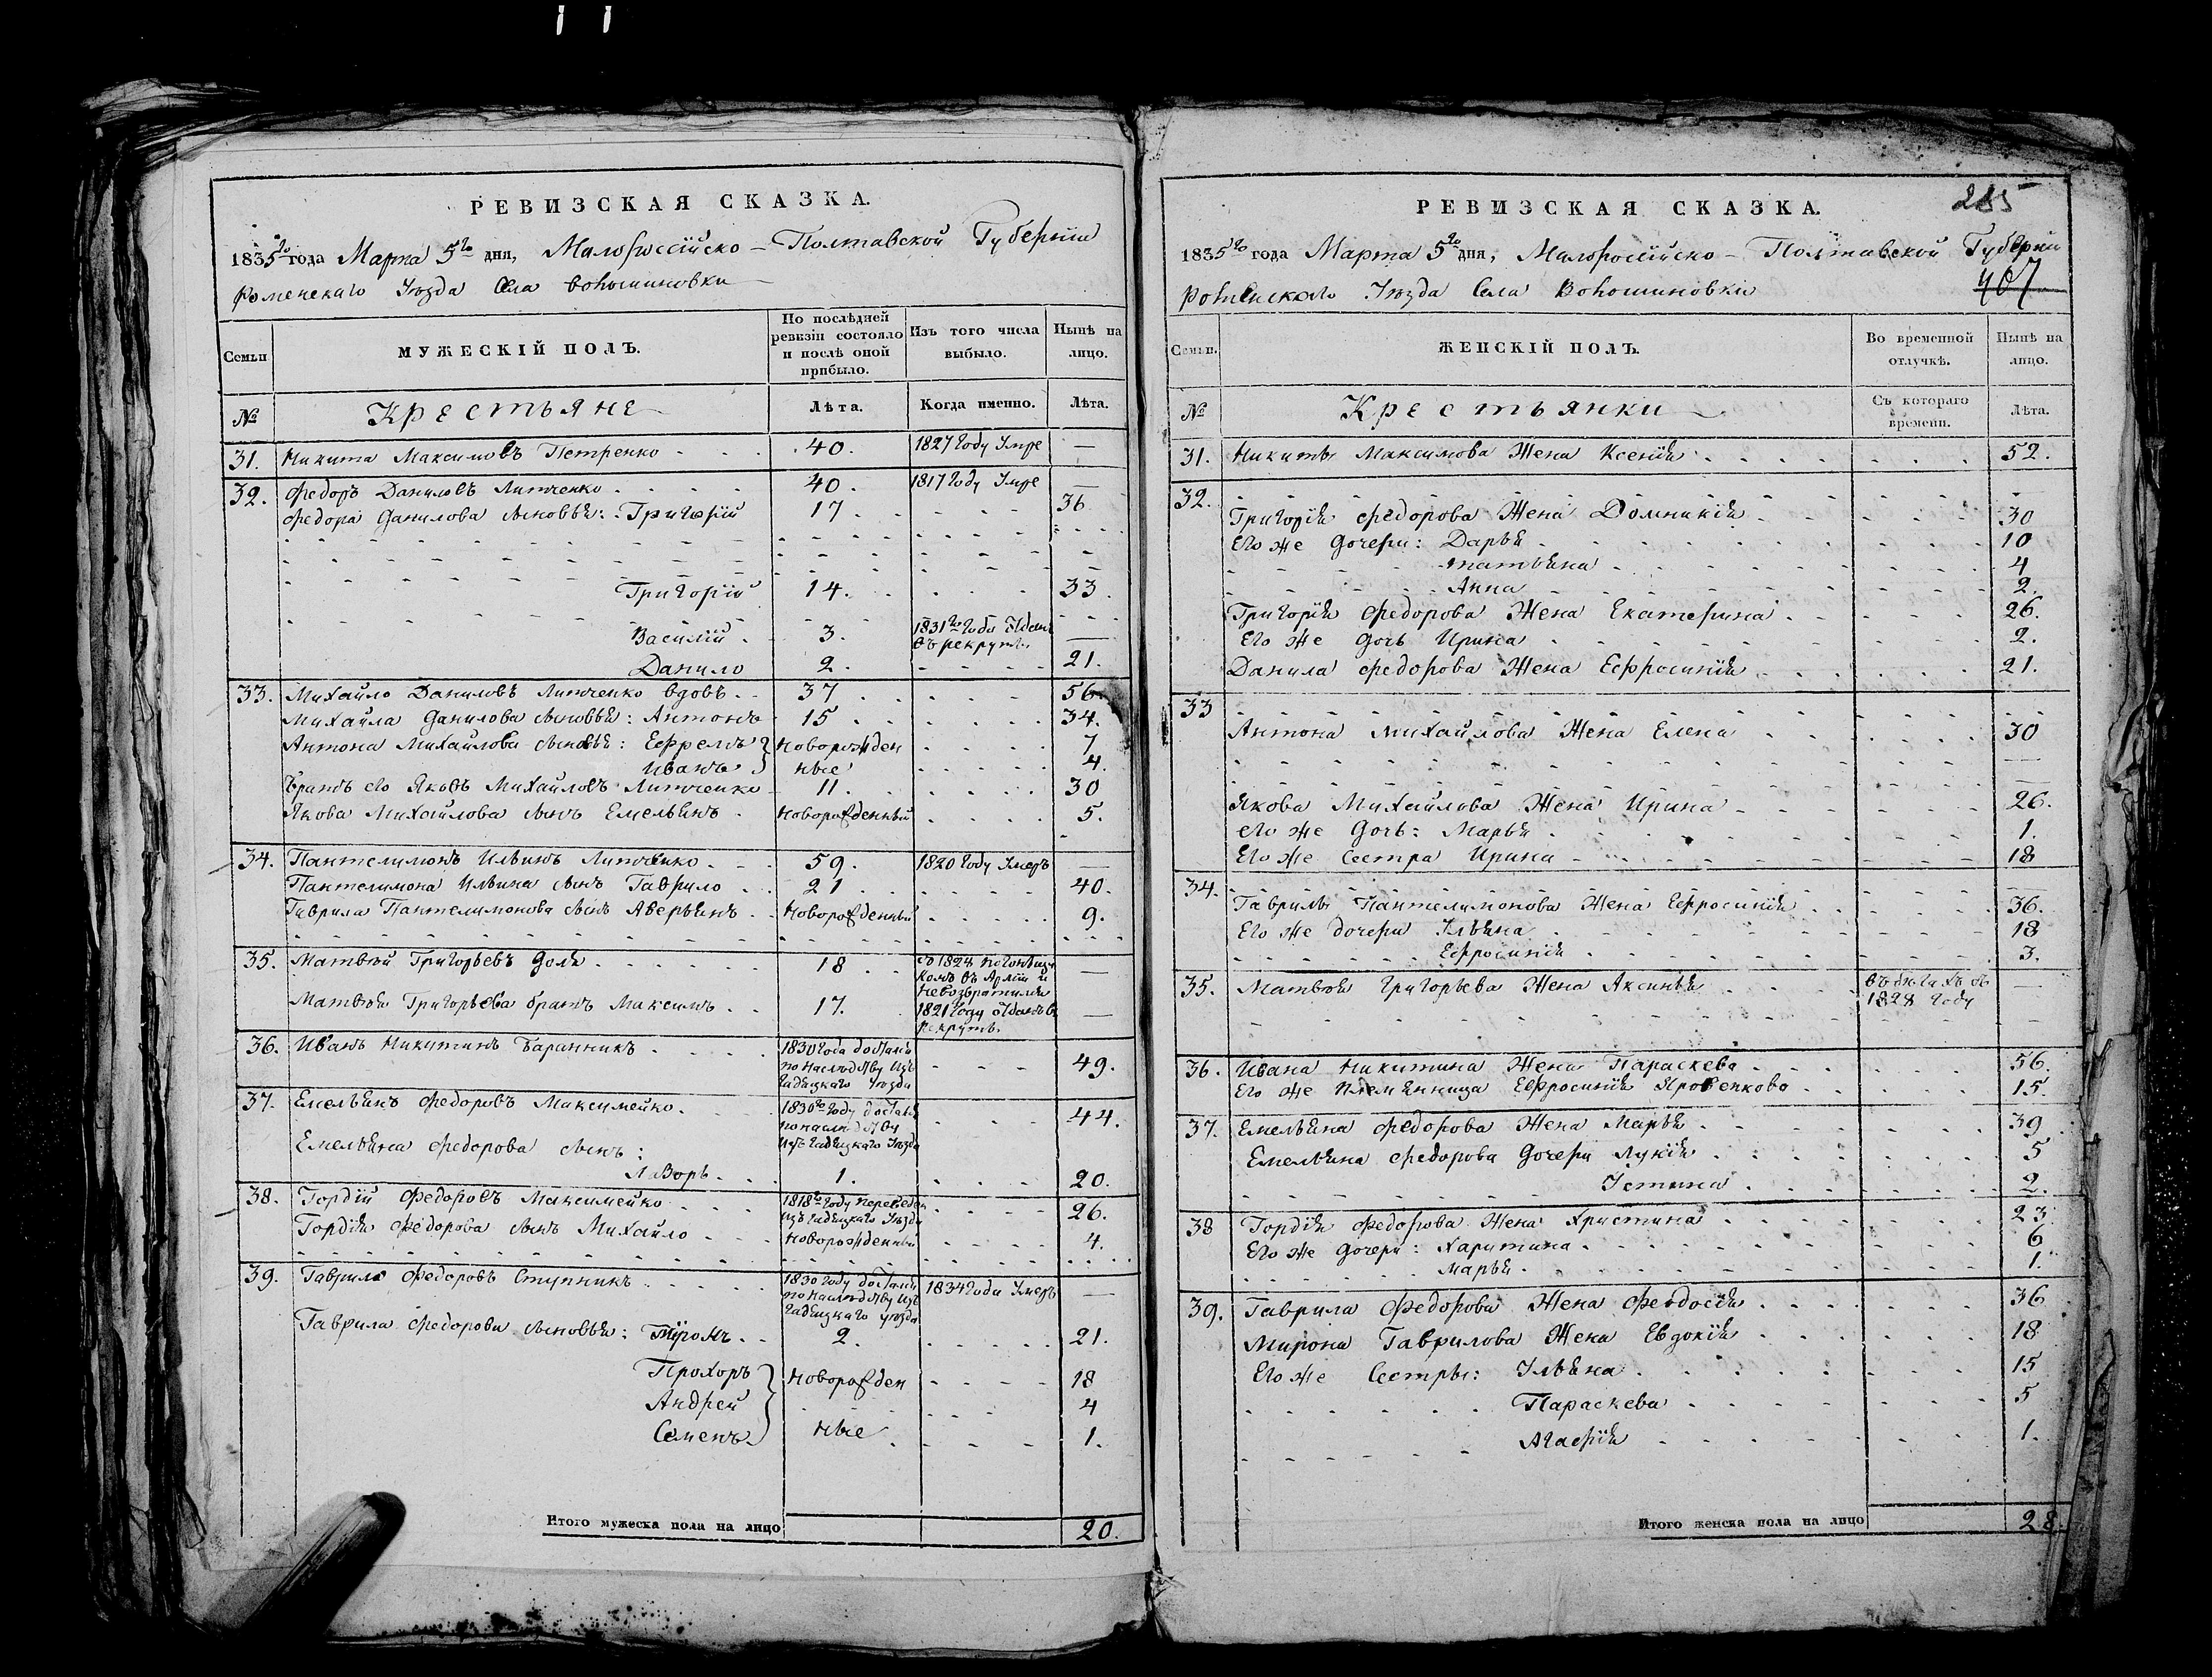 РЕВИЗСКАЯ СКАЗКА.
1835го года Марта 5го дня, Малороссійско-Полтавской Губерніи
Роменскаго Уѣзда Села
Семьи
МУЖЕСКІЙ ПОЛЪ.
По послѣдней ревизіи состояло и послѣ оной прибыло.
Изъ того числа выбыло.
Нынѣ на лицо.
№
Крестьяне
Лѣта.
Когда именно.
Лѣта.
31. Никита Максимовъ Петренко 40. 1827 году Умре —
32. Федоръ Даниловъ Литченко 40. 1817 году Умре —
Федора Данилова сыновья: Григорій 17. 36
Григорій 14. 33.
Василій 3. 1831го года отданъ въ рекруты. —
Данило 2. 21.
33. Михайло Даниловъ Литченко вдовъ 37 56
Михайла Данилова сыновья: Антонъ 15 34.
Антона Михайлова сыновья: Ефремъ } новорожден 7
Иванъ } ные 4.
Братъ его Яковъ Михайловъ Литченко 11. 30
Якова Михайлова сынъ Емельянъ новорожденный 5.
34. Пантелимонъ Ильинъ Литченко 59. 1820 году Умеръ —
Пантелимона Ильина сынъ Гаврило 21 40.
Гаврила Пантелимонова сынъ Аверьянъ новорожденный 9.
35. Матвѣй Григорьевъ Доля 18 —
Матвѣя Григорьева братъ Максимъ 17. 1821 году отданъ въ рекруты. —
36. Иванъ Никитинъ Баранникъ 1830 года достался по наслѣдству изъ Гадяцкаго уѣзда 49.
37. Емельянъ Федоровъ Максимейко 1830го году достался по наслѣдству изъ Гадяцкаго Уѣзда 44.
Емельяна Федорова сынъ:
Лаворъ 1. 20.
38. Гордій Федоровъ Максимейко 1818го году переведенъ изъ Гадяцкаго Уѣзда 26.
Гордія Федорова сынъ Михайло новорожденный 4.
39. Гаврило Федоровъ Ступникъ 1830 году достался по наслѣдству изъ Гадяцкаго уѣзда 1834 года Умеръ —
Гаврила Федорова сыновья: 2. 21.
Прохоръ } новорожден 18
Андрей } 4
Семенъ } ные 1.
Итого мужеска пола на лицо 20.
285
РЕВИЗСКАЯ СКАЗКА.
1835го года Марта 5го дня, Малоросійско-Полтавской Губерніи
407
Роменскаго Уѣзда Села
Семьи.
ЖЕНСКІЙ ПОЛЪ.
Во временной отлучкѣ.
Нынѣ на лицо.
№
Крестьянки
Съ котораго времени.
Лѣта.
31. Никиты Максимова Жена Ксенія 52.
32. —
Григорія Федорова Жена Домникія 30
Его же дочери: Дарья 10
Татьяна 4
Анна 2.
Григорія Федорова Жена Екатерина 26.
Его же дочь Ирина 2.
Данила Федорова Жена Ефросинія 21.
33
Антона Михайлова Жена Елена 30
—
—
Якова Михайлова Жена Ирина 26.
Его же дочь: Марья 1.
Его же Сестра Ирина 18
34. —
Гаврилы Пантелимонова Жена Ефросинія 36.
Его же дочери Ульяна 18
Ефросинія 3.
35. Матвѣя Григорьева Жена Аксинья въ бѣгахъ съ 1828 году —
36. Ивана Никитина Жена Параскева 56.
Его же племянница Ефросинія 15.
37. Емельяна Федорова Жена Марья 39
Емельяна Федорова дочери Лукія 5
Устина 2.
38 Гордія Федорова Жена Христина 23.
Его же дочери: Харитина 6
Марья 1.
39. Гаврила Федорова Жена Феодосія 36
Мирона Гаврилова Жена Евдокія 18
Его же Сестры: Ульяна 15
Параскева 5
Агафія 1.
Итого женска пола на лицо 28.